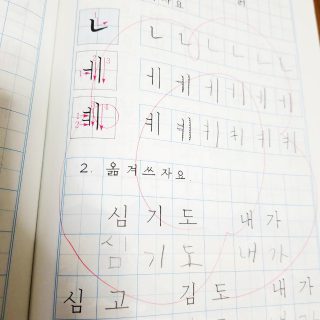 자요
ㄴ ㄴ ㄴ ㄴ ㄴ ㄴ ㄴ
ㅔ ㅔ ㅔ ㅔ ㅔ ㅔ ㅔ
ㅖ ㅖ ㅖ ㅖ ㅖ ㅖ ㅖ
2. 옮겨쓰자요.
심 기 도 내 가
심 기 도 내 가
심 고 김 도 내 가